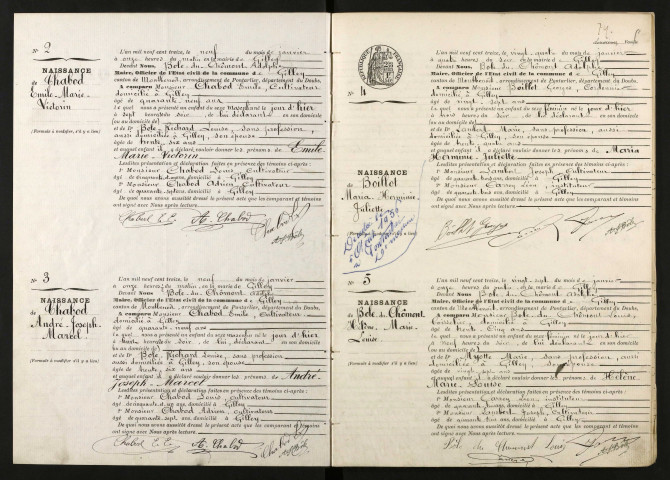 N° 2
NAISSANCE
de Chabod
Emile-Marie-
Victorin
(Formule à modifier s'il y a lieu)
L'an mil neuf cent treize, le neuf du mois de janvier
à onze heures du matin, en la mairie de Gilley
Devant Nous Bole du Chômont Adolphe
Maire, Officier de l'État civil de la commune de Gilley
canton de Montbenoit, arrondissement de Pontarlier, département du Doubs,
A comparu Monsieur Chabod Emile, Cultivateur
domicilié à Gilley
âgé de quarante neuf ans
Lequel nous a présenté un enfant du sexe masculin né le jour d'hier
à sept heures du soir, de lui déclarant en son
ou au domicile de
et de De Bole-Richard Louise, sans profession,
aussi domiciliée à Gilley, son épouse
âgée de trente six ans
et auquel enfant il a déclaré vouloir donner les prénoms de Emile
Marie-Victorin
Lesdites présentation et déclaration faites en présence des témoins ci-après :
1° Monsieur Chabod Louis, Cultivateur
âgé de cinquante ans, domicilié à Gilley
2° Monsieur Chabod Adrien, Cultivateur
âgé de quarante sept ans, domicilié à Gilley
Nous avons aussitôt dressé le présent acte que les comparant et témoins
ont signé avec Nous après lecture.
Chabod E.E. A. Chabod
N° 3
NAISSANCE
de Chabod
André-Joseph-
Marcel
(Formule à modifier s'il y a lieu)
L'an mil neuf cent treize, le neuf du mois de janvier
à onze heures du matin, en la mairie de Gilley
Devant Nous Bole du Chômont Adolphe
Maire, Officier de l'État civil de la commune de Gilley
canton de Montbenoit, arrondissement de Pontarlier, département du Doubs,
A comparu Monsieur Chabod Emile, Cultivateur
domicilié à Gilley
âgé de quarante neuf ans
Lequel nous a présenté un enfant du sexe masculin né le jour d'hier
à heures du soir, de lui déclarant en son
ou au domicile de
et de De Bole-Richard Louise, sans profession
aussi domiciliée à Gilley, son épouse
âgée de trente six ans
et auquel enfant il a déclaré vouloir donner les prénoms de André
Joseph-Marcel
Lesdites présentation et déclaration faites en présence des témoins ci-après :
1° Monsieur Chabod Louis, cultivateur
âgé de cinquante ans, domicilié à Gilley
2° Monsieur Chabod Adrien, cultivateur
âgé de quarante sept ans, domicilié à Gilley
Nous avons aussitôt dressé le présent acte que les comparant et témoins
ont signé avec Nous après lecture.
Chabod E.E. A. Chabod
N° 4
NAISSANCE
de Boillet
Maria Herminie
Juliette
L'an mil neuf cent treize, le vingt quatre du mois de janvier
à quatre heures du soir, en la mairie de Gilley
Devant Nous, Bole du Chômont Adolphe
Maire, Officier de l'État civil de la commune de Gilley
canton de Montbenoit, arrondissement de Pontarlier, département du Doubs,
A comparu Monsieur Boillet Georges, Cordonnier
domicilié à Gilley
âgé de vingt sept ans
Lequel nous a présenté un enfant du sexe féminin né le jour d'hier
à heures du soir, de lui déclarant en son
ou au domicile de
et de De Lambert Marie, sans profession, aussi
domiciliée à Gilley, son épouse
âgée de trente ans
et auquel enfant il a déclaré vouloir donner les prénoms de Maria
Herminie Juliette
Lesdites présentation et déclaration faites en présence des témoins ci-après :
1° Monsieur Lambert Joseph, Cultivateur
âgé de ans, domicilié à Gilley
2° Monsieur Carrey Léon, instituteur
âgé de quarante ans, domicilié à Gilley
Nous avons aussitôt dressé le présent acte que les comparant et témoins
ont signé avec Nous après lecture.
Boillet Georges
N° 5
NAISSANCE
de Bole du Chômont
Hélène-Marie-
Louise
(Formule à modifier s'il y a lieu)
L'an mil neuf cent treize, le vingt sept du mois de janvier
à heures du soir, en la mairie de Gilley
Devant Nous Bole du Chômont Adolphe
Maire, Officier de l'État civil de la commune de Gilley
canton de Montbenoit, arrondissement de Pontarlier, département du Doubs,
A comparu Monsieur Bole du Chômont Louis,
domicilié à Gilley
âgé de trente cinq ans
Lequel nous a présenté un enfant du sexe féminin né le jour d'hier
à neuf heures du soir, de lui déclarant en son
ou au domicile de
et de De Myotte Marie, sans profession, aussi
domiciliée à Gilley, son épouse
âgée de ans
et auquel enfant il a déclaré vouloir donner les prénoms de Hélène
Marie-Louise
Lesdites présentation et déclaration faites en présence des témoins ci-après :
1° Monsieur Carrey Léon, instituteur
âgé de quarante ans, domicilié à Gilley
2° Monsieur Lambert Joseph, Cultivateur
âgé de ans, domicilié à Gilley
Nous avons aussitôt dressé le présent acte que les comparant et témoins
ont signé avec Nous après lecture.
Bole du Chômont Louis